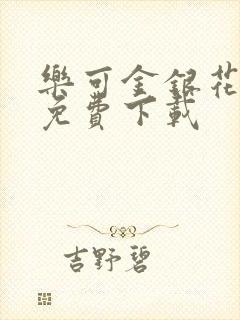 樂可金銀花
免費下載
吉野碧